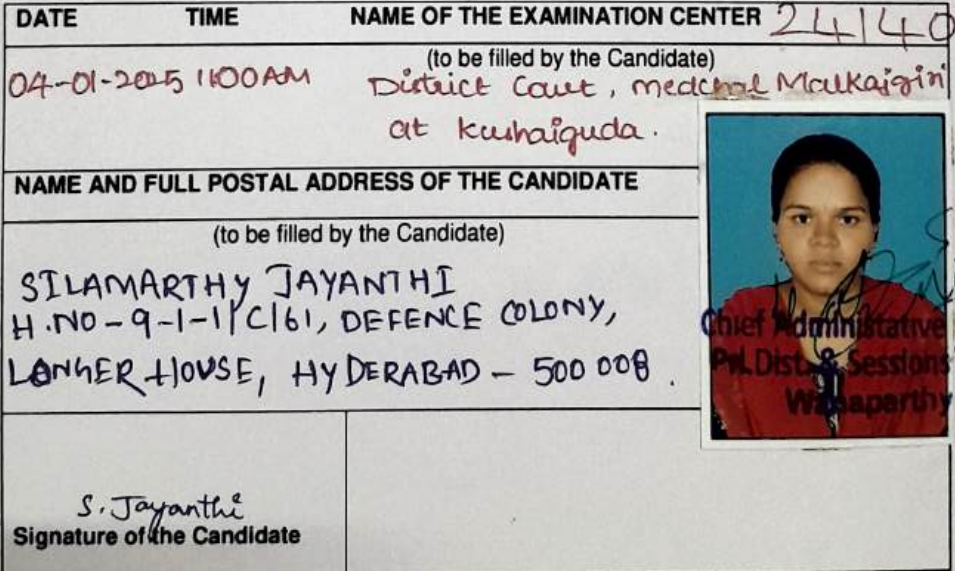 DATE TIME NAME OF THE EXAMINATION CENTER 24140
(to be filled by the Candidate)
04-01-2025 11:00AM District Court, medchal Malkajgiri
at Kushaiguda.
NAME AND FULL POSTAL ADDRESS OF THE CANDIDATE
(to be filled by the Candidate)
SILAMARTHY JAYANTHI
H.NO-9-1-1/C/61, DEFENCE COLONY,
LANGER HOUSE, HYDERABAD - 500 008.
Chief Administrative
Prl. Dist. & Sessions
Wanaparthy
S. Jayanthi
Signature of the Candidate